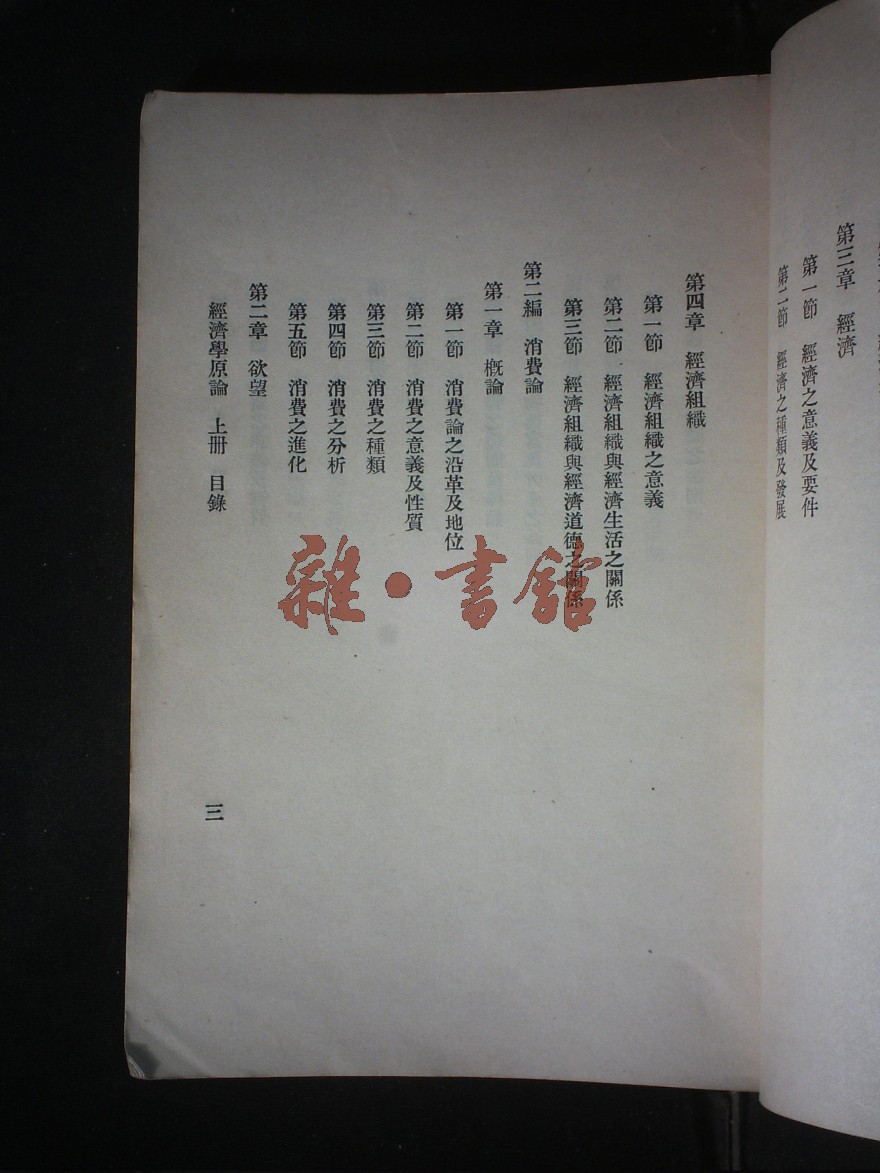 第三章　經濟
第一節　經濟之意義及要件
第二節　經濟之種類及發展
第四章　經濟組織
第一節　經濟組織之意義
第二節　經濟組織與經濟生活之關係
第三節　經濟組織與經濟道德之關係
第二編　消費論
第一章　槪論
第一節　消費論之沿革及地位
第二節　消費之意義及性質
第三節　消費之種類
第四節　消費之分析
第五節　消費之進化
第二章　欲望
經濟學原論　上册　目錄
三
雜·書館